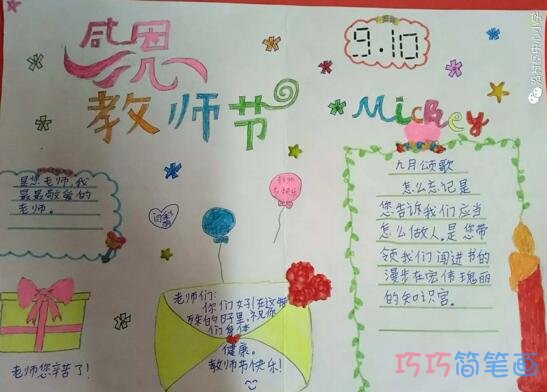 感恩
教师节
9.10
Mickey
是您,老师,我
最最敬爱的
老师。
教师
节快乐
九月颂歌
怎么忘记是
您告诉我们应当
怎么做人。是您带
领我们闯进书的
漫步在宏伟瑰丽
的知识宫。
老师们:
你们好!在这特
殊的日子里,祝你
们身体
健康。
教师节快乐!
老师您辛苦了!
巧巧简笔画